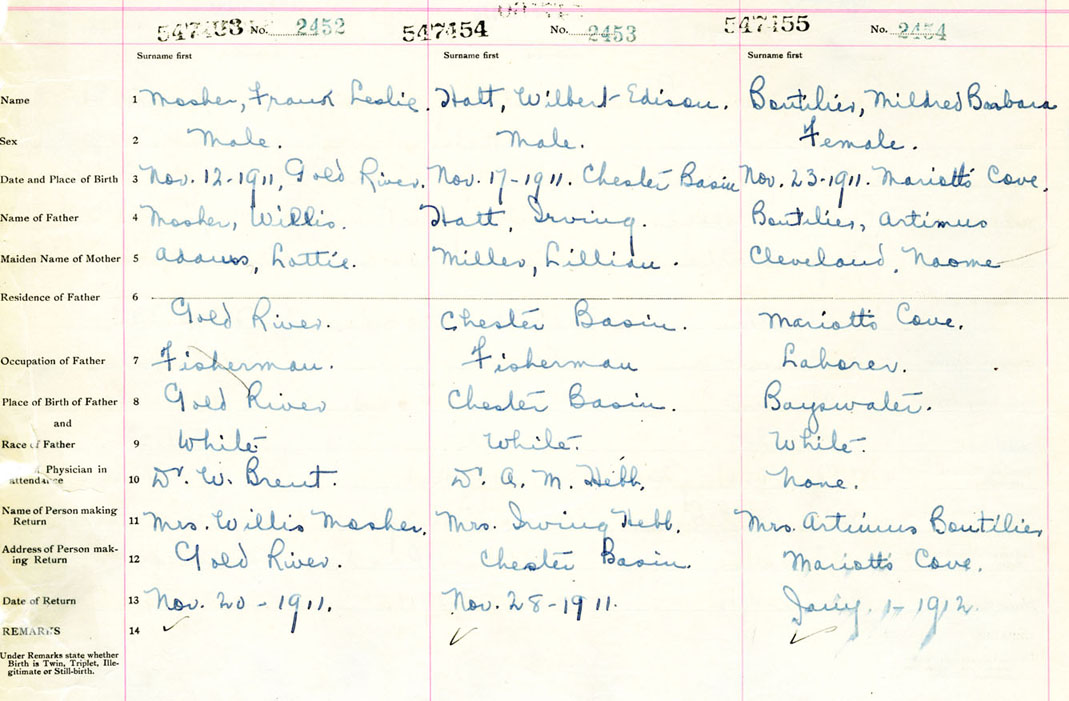 547453 No. 2452 547454 No. 2453 547455 No. 2454
Surname first Surname first Surname first
Name 1 Mosher, Frank Leslie. Hatt, Wilbert Edison. Boutilier, Mildred Barbara
Sex 2 Male. Male. Female.
Date and Place of Birth 3 Nov. 12-1911, Gold River. Nov. 17-1911. Chester Basin Nov. 23-1911. Mariotts Cove.
Name of Father 4 Mosher, Willis. Hatt, Irving. Boutilier, Artimus
Maiden Name of Mother 5 Adams, Lottie. Miller, Lillian. Cleveland, Naome
Residence of Father 6 Gold River. Chester Basin. Mariotts Cove.
Occupation of Father 7 Fisherman. Fisherman Laborer.
Place of Birth of Father 8 Gold River Chester Basin. Bayswater.
and
Race of Father 9 White. White. White.
Physician in
attendance 10 Dr. W. Brent. Dr. A. M. Hebb. None.
Name of Person making
Return 11 Mrs. Willis Mosher. Mrs. Irving Hebb. Mrs. Artimus Boutilier
Address of Person mak-
ing Return 12 Gold River. Chester Basin. Mariotts Cove.
Date of Return 13 Nov. 20-1911. Nov. 28-1911. Jany. 1-1912.
REMARKS 14
Under Remarks state whether
Birth is Twin, Triplet, Ille-
gitimate or Still-birth.